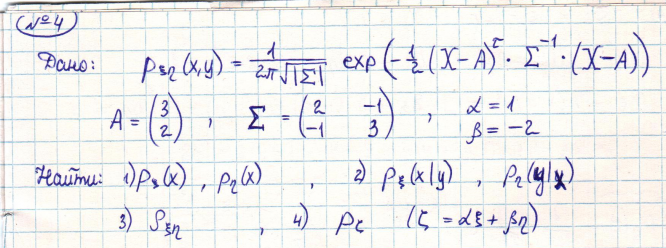 №4
Дано: p_{ξη}(x,y) = \frac{1}{2π\sqrt{|Σ|}} exp(-\frac{1}{2}(X-A)^τ · Σ^{-1} · (X-A))
A = \begin{pmatrix} 3 \\ 2 \end{pmatrix} , Σ = \begin{pmatrix} 2 & -1 \\ -1 & 3 \end{pmatrix} , α = 1 β = -2
Найти: 1) p_ξ(x) , p_η(x) , 2) p_ξ(x|y) , p_η(y|x)
3) ρ_{ξη} , 4) p_ζ (ζ = αξ + βη)